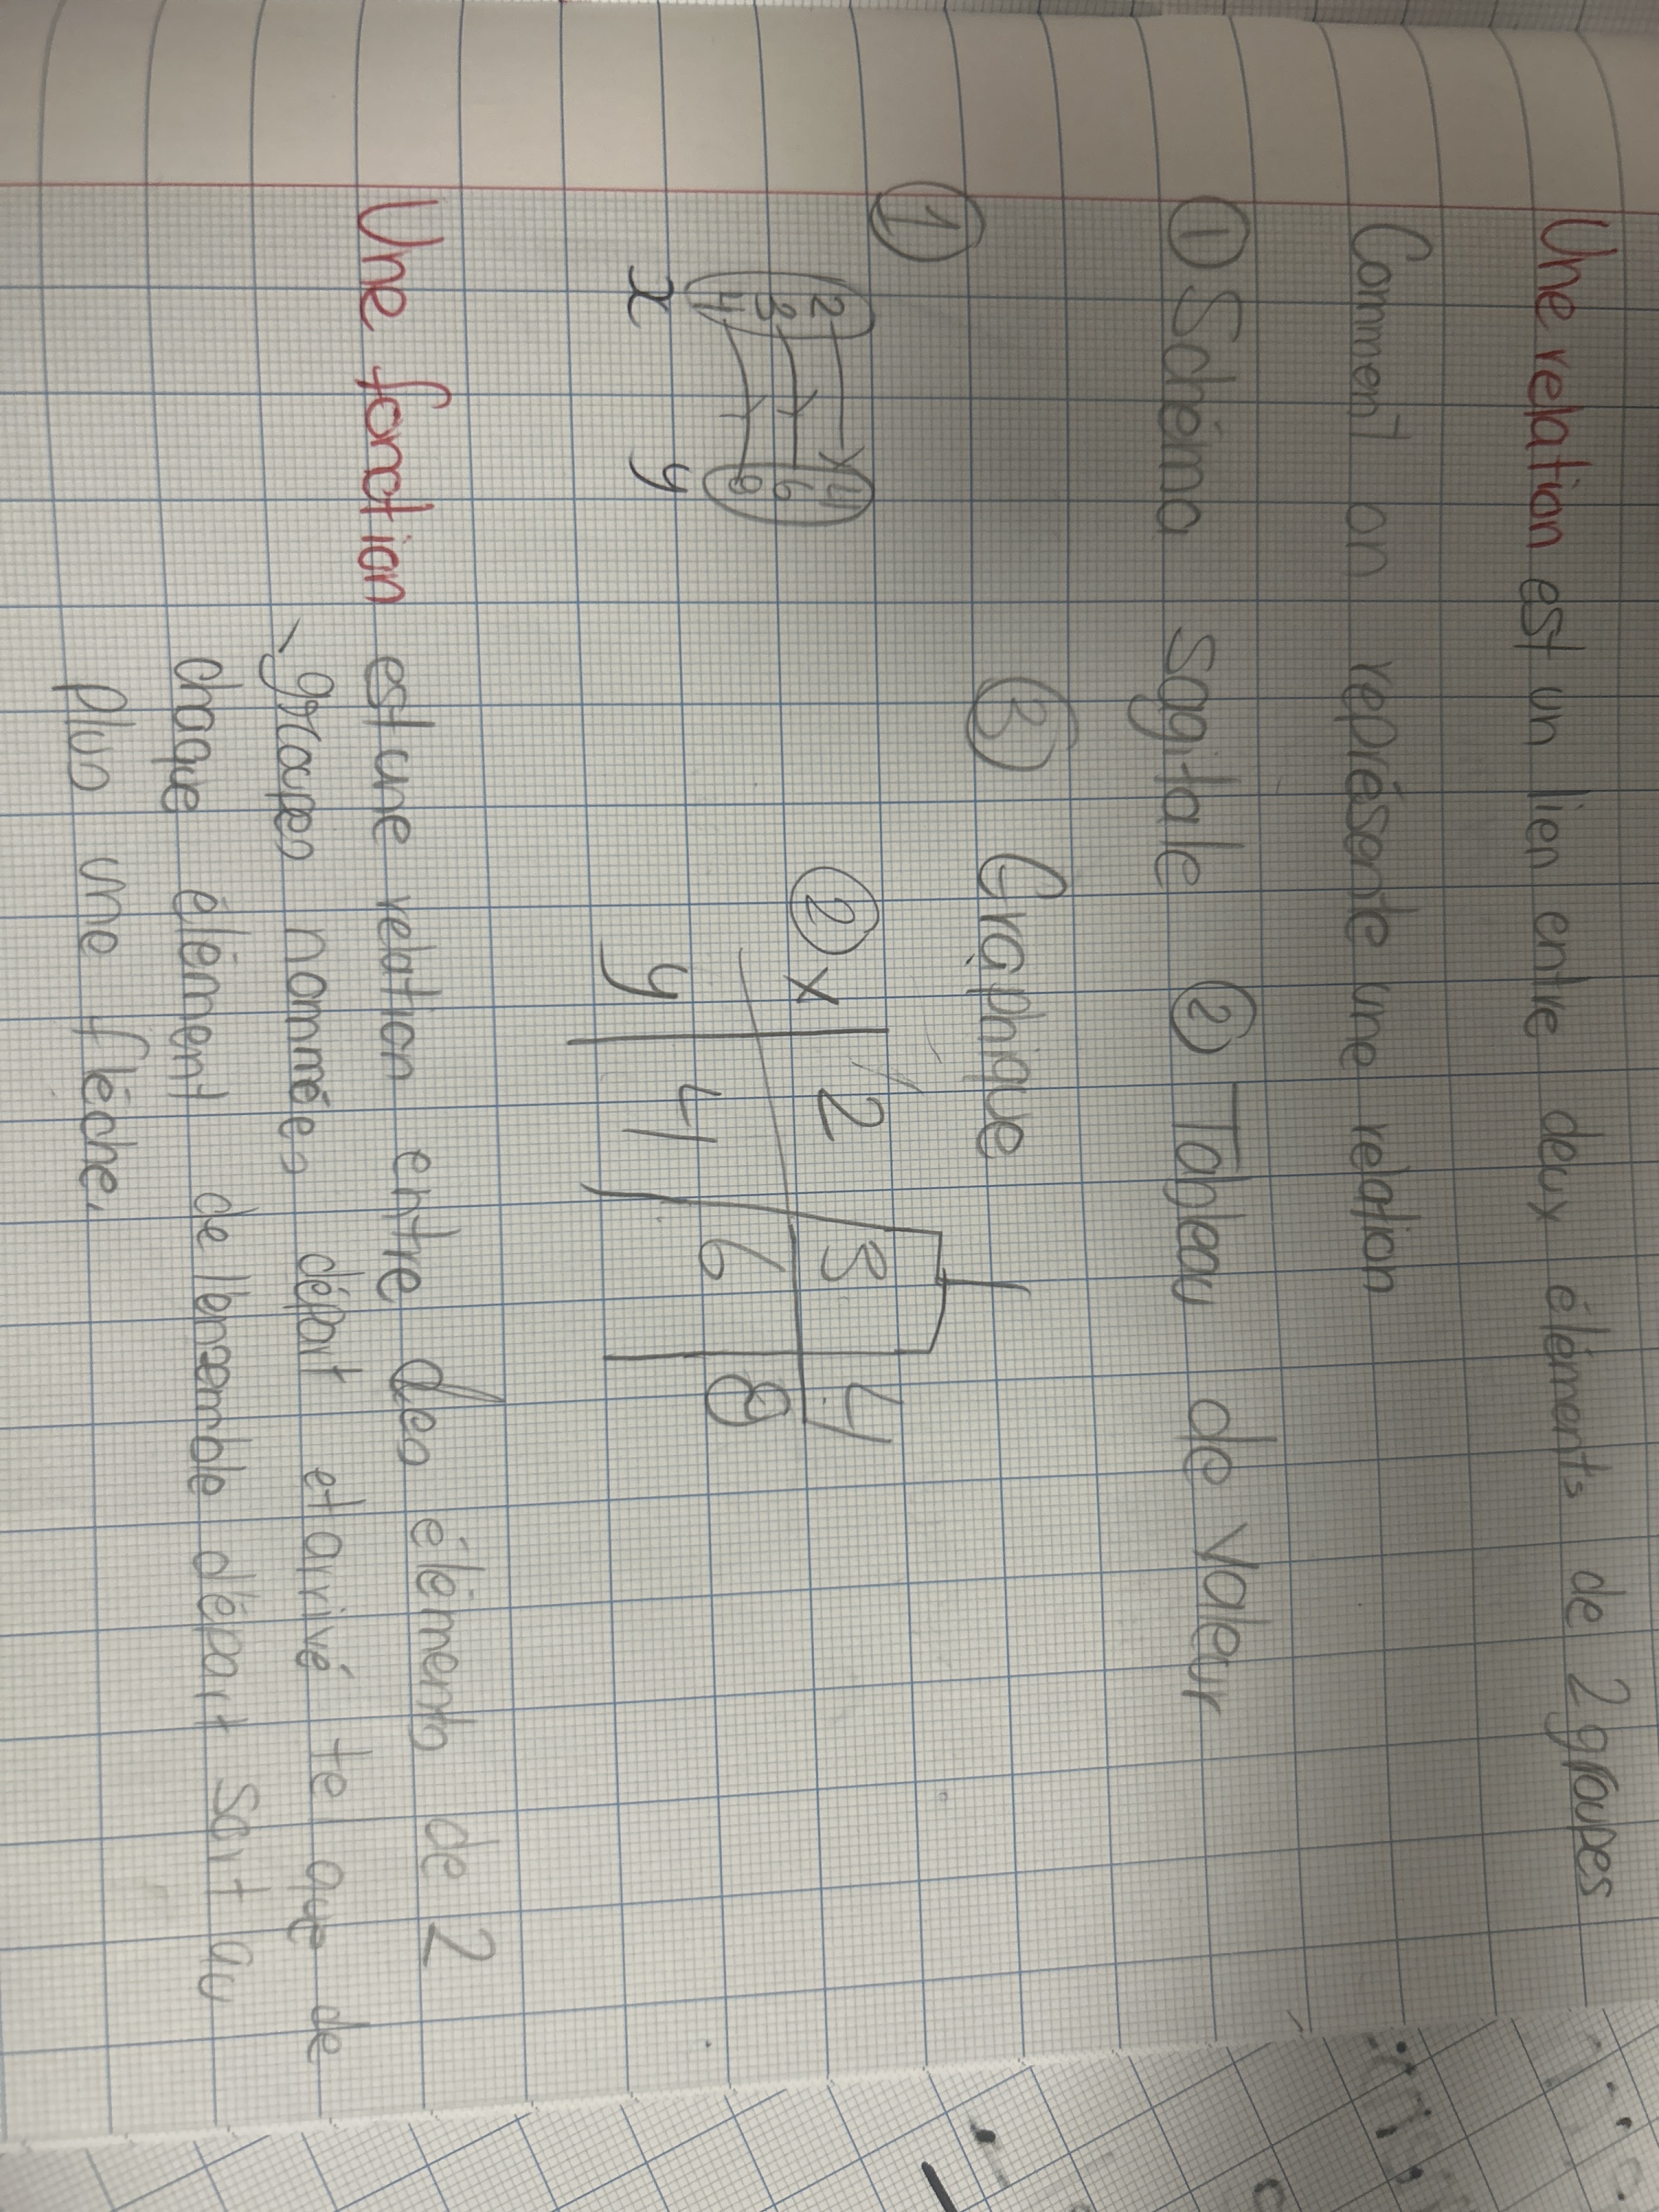 Une relation est un lien entre deux éléments de 2 groupes
Comment on représente une relation
① Schéma sagitale ② Tableau de valeur
③ Graphique
①
2 4
3 6
4 8
x y
② x 2 3 4
y 4 6 8
Une fonction est une relation entre des éléments de 2
groupes nommées départ et arivé tel que de
chaque élément de l'ensemble départ sort au
plus une flèche.